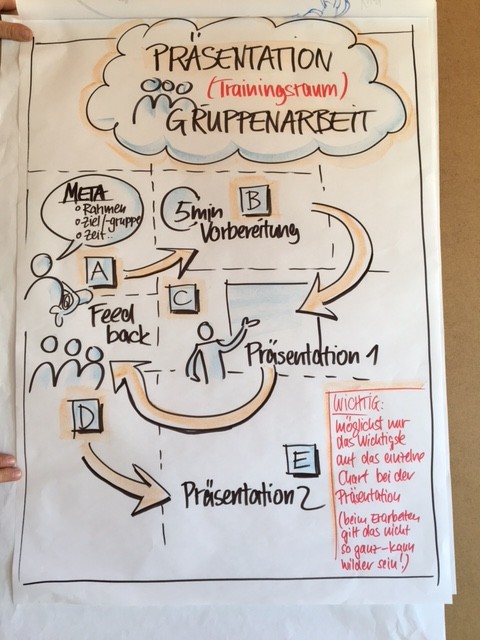 PRÄSENTATION
(Trainingsraum)
GRUPPENARBEIT
META
Rahmen
Ziel/-gruppe
Zeit..
A
5min
Vorbereitung
B
C
Präsentation 1
Feed
back
D
E
Präsentation 2
WICHTIG:
möglichst nur
das Wichtigste
auf das einzelne
Chart bei der
Präsentation
(beim Erarbeiten
gilt das nicht
so ganz - kann
wilder sein!)